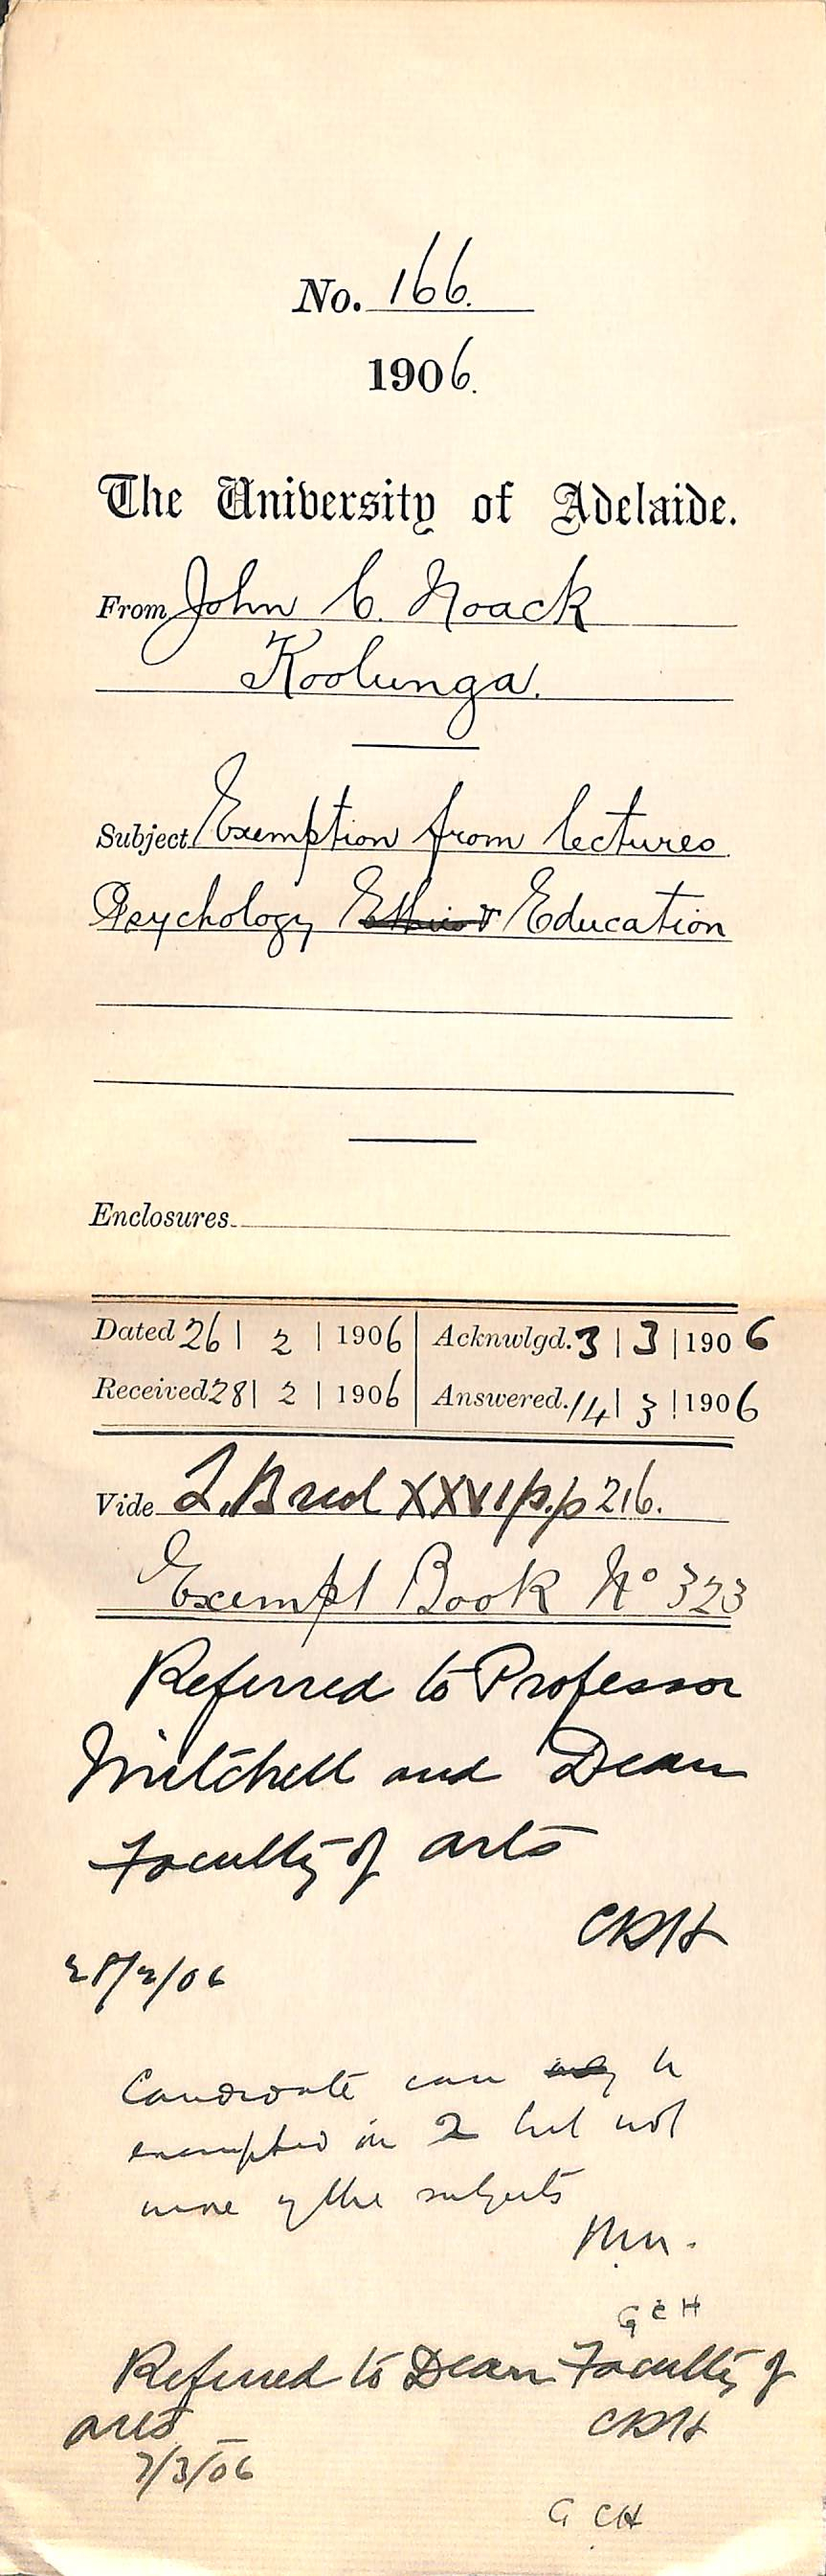 No. 166.
1906.
The University of Adelaide.
From John C. Noack
Koolunga.
Subject Exemption from lectures.
Psychology Ethics & Education
Enclosures
Dated 26 | 2 | 1906 | Acknwlgd. 3 | 3 | 1906
Received 28 | 2 | 1906 | Answered. 14 | 3 | 1906
Vide XXVI p.p 216.
Exempt Book No 323
Referred to Professor
Mitchell and Dean
Faculty of Arts
CRH
28/2/06
Candidate can only be
exempted in 2 but not
more of the subjects
G C H
Referred to Dean Faculty of
Arts
CRH
7/3/06
G CH